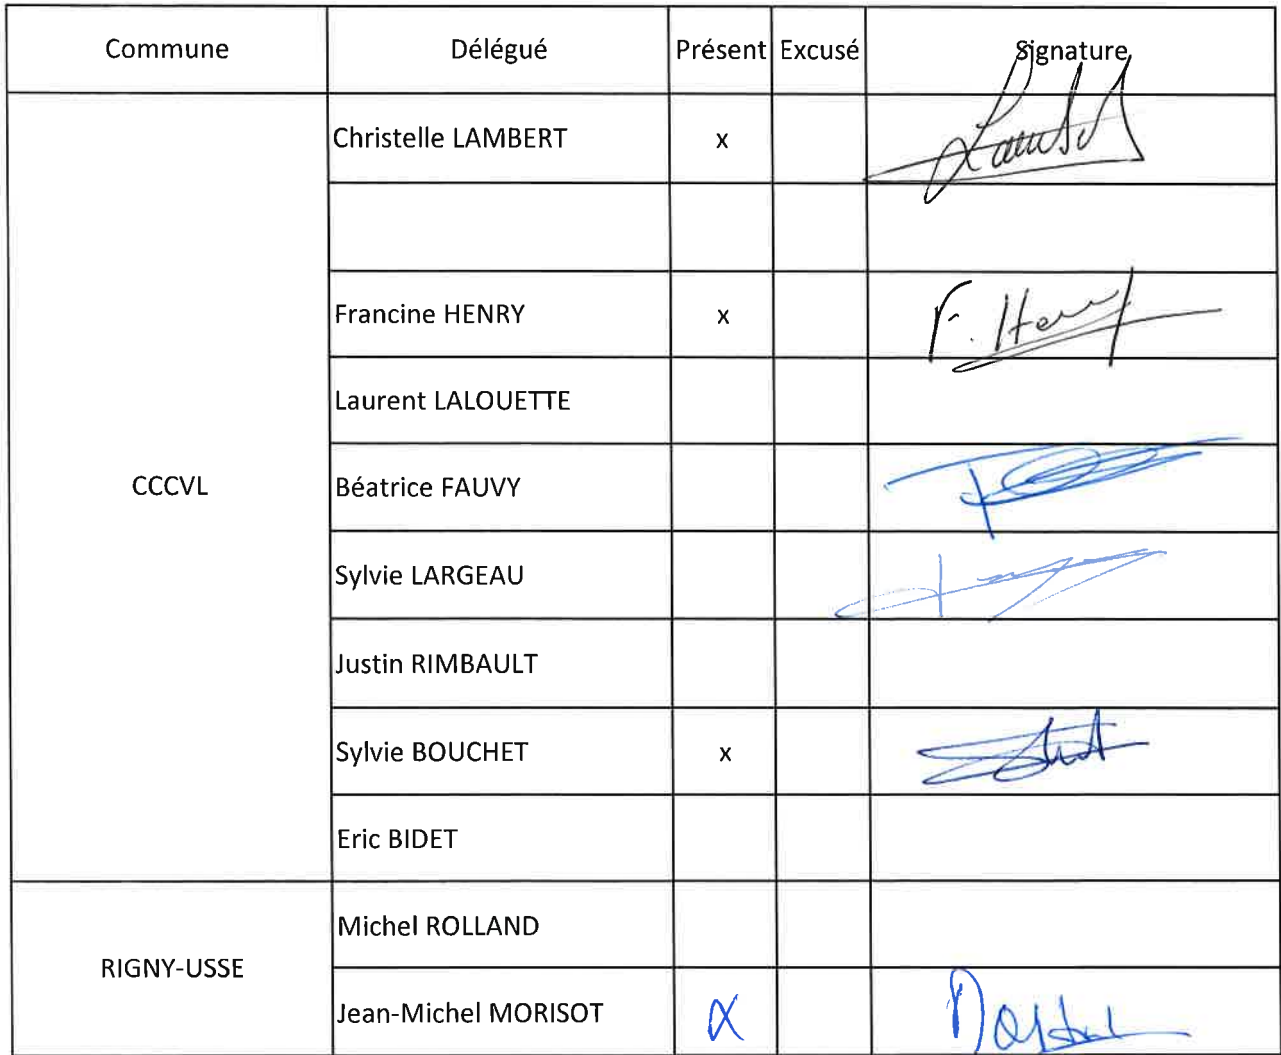 Commune Délégué Présent Excusé Signature
Christelle LAMBERT x Lambert
Francine HENRY x F. Henry
Laurent LALOUETTE
CCCVL Béatrice FAUVY
Sylvie LARGEAU
Justin RIMBAULT
Sylvie BOUCHET x
Eric BIDET
Michel ROLLAND
RIGNY-USSE
Jean-Michel MORISOT x